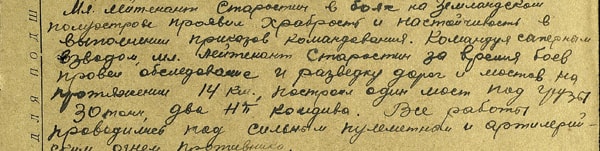 Мл. лейтенант Старостин в боях на Земландском
полуострове проявил храбрость и настойчивость в
выполнении приказов командования. Командуя саперным
взводом, мл. лейтенант Старостин за время боев
провел обследование и разведку дорог и мостов на
протяжении 14 км., построил один мост под грузы
30 тонн, два НП комдива. Все работы
проводились под сильным пулеметным и артиллерий-
ским огнем противника.
ДЛЯ ПОДШ